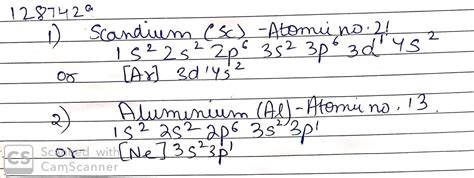 128742a
1) Scandium (Sc) - Atomic no. 21
1s² 2s² 2p⁶ 3s² 3p⁶ 3d¹ 4s²
or [Ar] 3d¹4s²
2) Aluminium (Al) - Atomic no. 13
1s² 2s² 2p⁶ 3s² 3p¹
or [Ne] 3s²3p¹
CS Scanned with
CamScanner